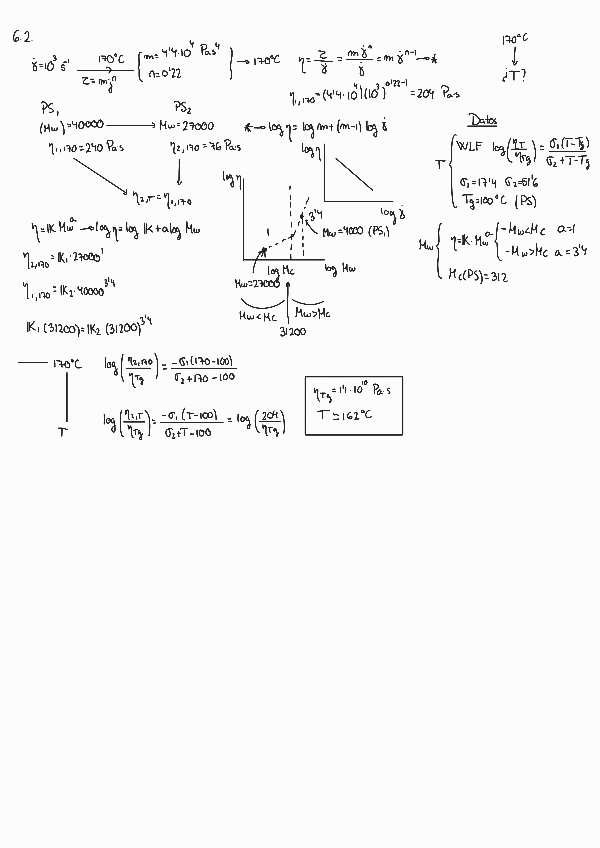 6.2.
170°C
¿T?
γ̇=10³ s⁻¹ 170°C τ=mγ̇ⁿ { m=4'4·10⁴ Pa s⁴ n=0'22 } → 170°C η = τ/γ̇ = mγ̇ⁿ/γ̇ = mγ̇ⁿ⁻¹ → *
η₁,₁₇₀=(4'4·10⁴)(10³)^0'22-1 = 204 Pa s
PS₁ PS₂
(Mw)=40000 → Mw=27000
η₁,₁₇₀=240 Pa s η₂,₁₇₀=76 Pa s
η₂,T=η₁,₁₇₀
* → log η = log m + (m-1) log γ̇
log η
log γ̇
Datos
T { WLF log(ηT/ηTg) = σ₁(T-Tg)/σ₂+T-Tg
σ₁=17'4 σ₂=51'6
Tg=100°C (PS)
Mw { η=K·Mwᵃ { -Mw<Mc a=1
-Mw>Mc a=3'4
Mc(PS)=312
η=K Mwᵃ → log η = log K + a log Mw
η₂,₁₇₀=K₁·27000¹
η₁,₁₇₀=K₂·40000^3'4
K₁(31200)=K₂(31200)^3'4
log η
1
3'4
Mw=4000 (PS₁)
log Mc log Mw
Mw=27000
Mw<Mc Mw>Mc
31200
170°C log(η₂,₁₇₀/ηTg) = -σ₁(170-100)/σ₂+170-100
T log(η₂,T/ηTg) = -σ₁(T-100)/σ₂+T-100 = log(204/ηTg)
ηTg=1'1·10¹⁰ Pa s
T≃162°C